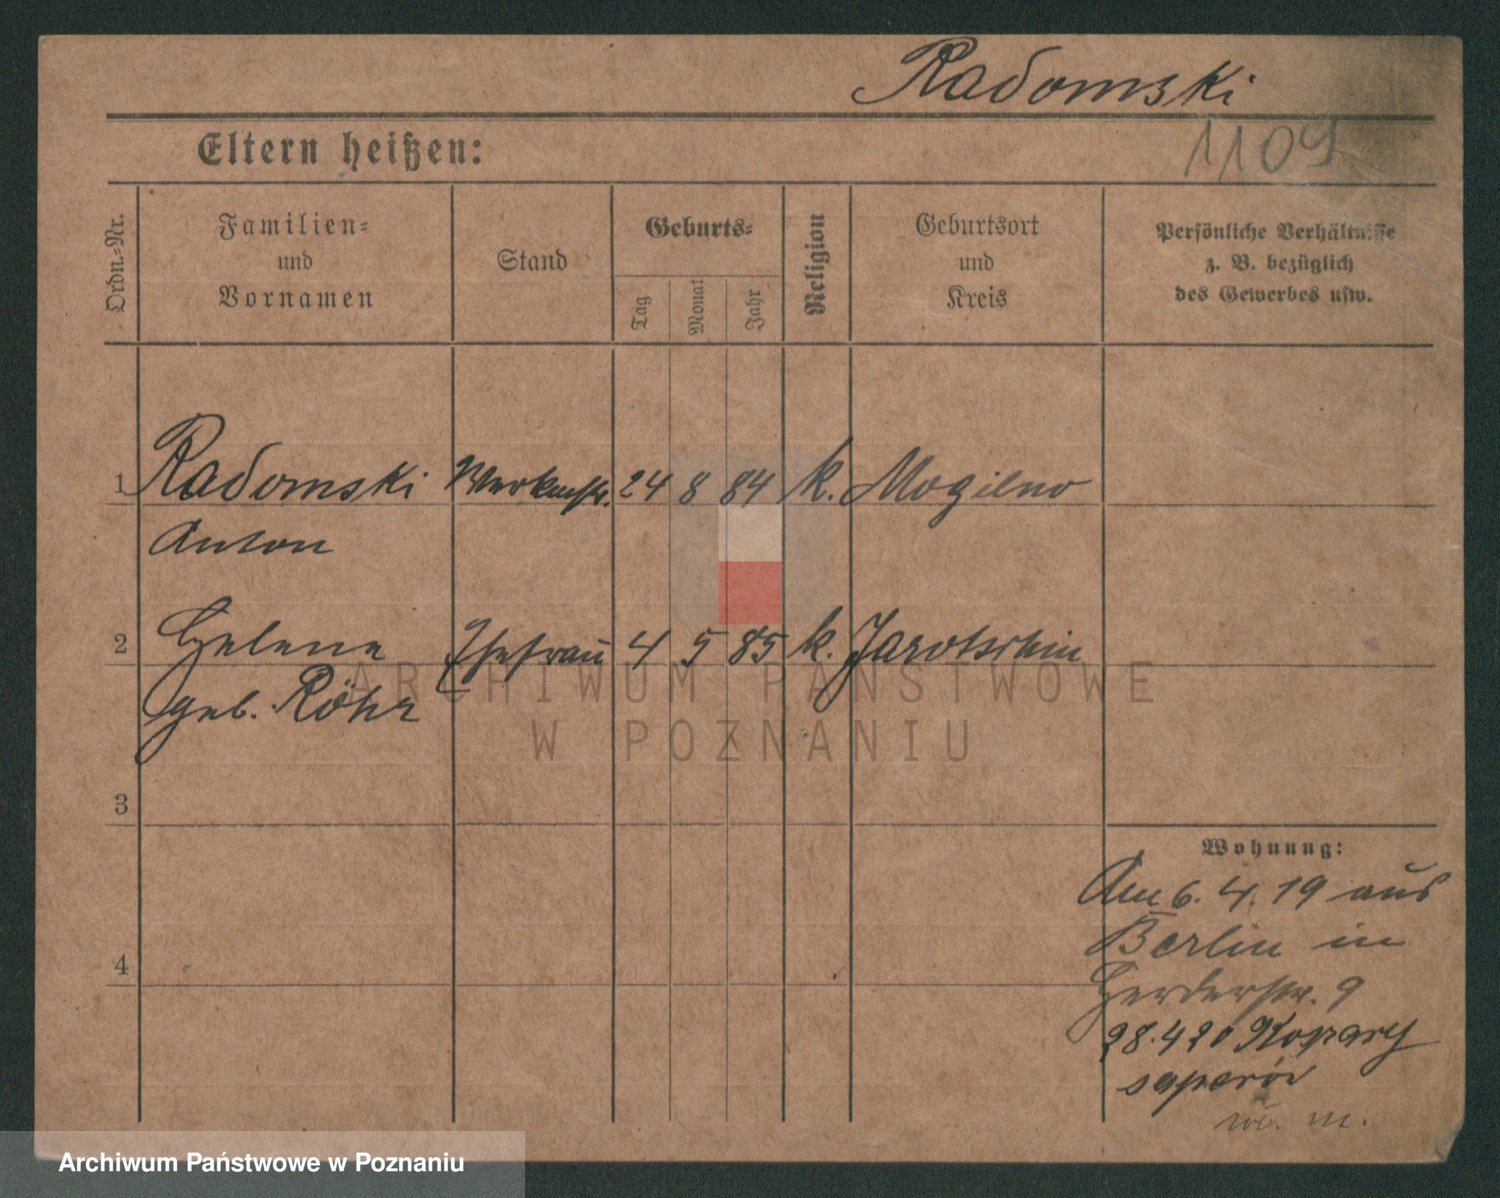 Radomski
1109
Eltern heißen:
Ordn.-Nr.
Familien-
und
Vornamen
Stand
Geburts-
Tag
Monat
Jahr
Religion
Geburtsort
und
Kreis
Persönliche Verhältnisse
z. B. bezüglich
des Gewerbes usw.
1 Radomski Werkmstr. 24 8 84 k. Mogilno
Anton
2 Helene Ehefrau 4 5 85 k. Jarotschin
geb. Röhr
ARCHIWUM PAŃSTWOWE
W POZNANIU
3
4
Wohnung:
Am 6. 4. 19 aus
Berlin in
Herderstr. 9
28.4 20 Koszary
saperów
m.
Archiwum Państwowe w Poznaniu